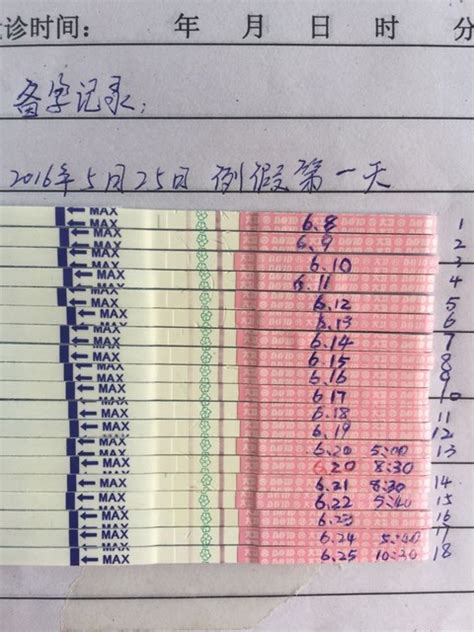 诊时间： 年 月 日 时 分
备孕记录：
2016年5月25日 例假第一天
MAX 6.8 1
MAX 6.9 2
MAX 6.10 3
MAX 6.11 4
MAX 6.12 5
MAX 6.13 6
MAX 6.14 7
MAX 6.15 8
MAX 6.16 9
MAX 6.17 10
MAX 6.18 11
MAX 6.19 12
MAX 6.20 5:00 13
MAX 6.20 8:30
MAX 6.21 8:30 14
MAX 6.22 5:40 15
MAX 6.23 16
MAX 6.24 5:40 17
MAX 6.25 10:30 18